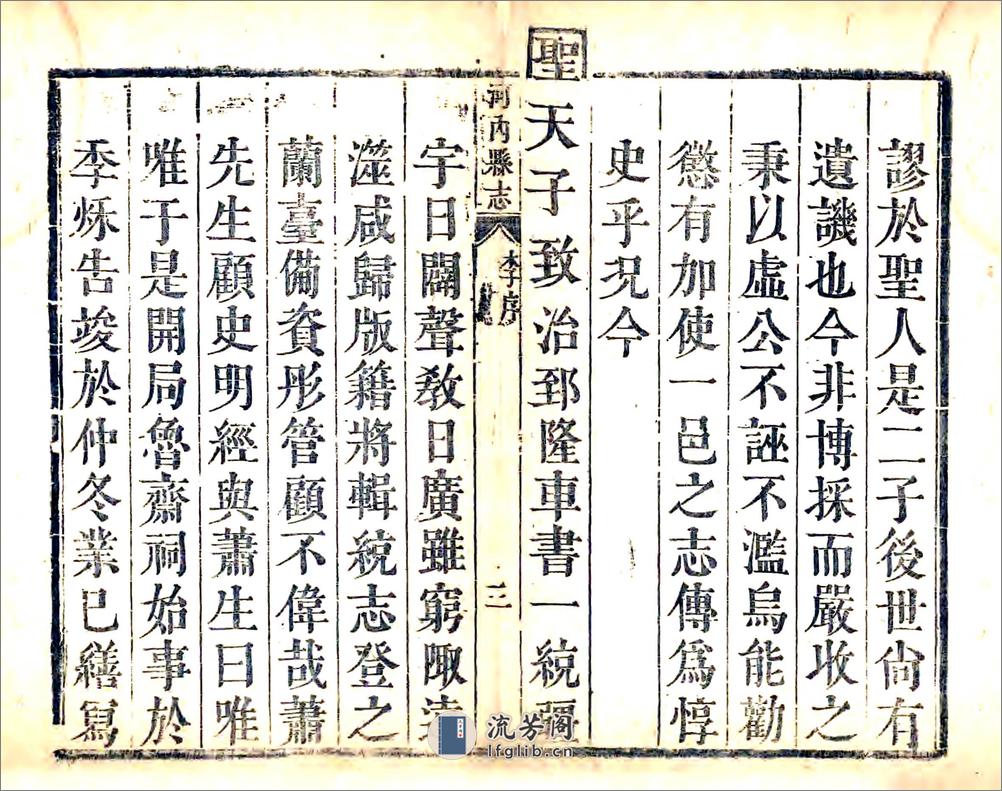 謬於聖人是二子後世尙有
遺譏也今非博採而嚴收之
秉以虛公不誣不濫烏能勸
懲有加使一邑之志傳爲惇
史乎況今
聖天子致治郅隆車書一統疆
河內縣志 李序 三
宇日闢聲教日廣雖窮陬遠
澨咸歸版籍將輯統志登之
蘭臺備資彤管顧不偉哉蕭
先生顧史明經與蕭生曰唯
唯于是開局魯齋祠始事於
季烁告竣於仲冬業已繕寫
流芳阁
lfglib.cn